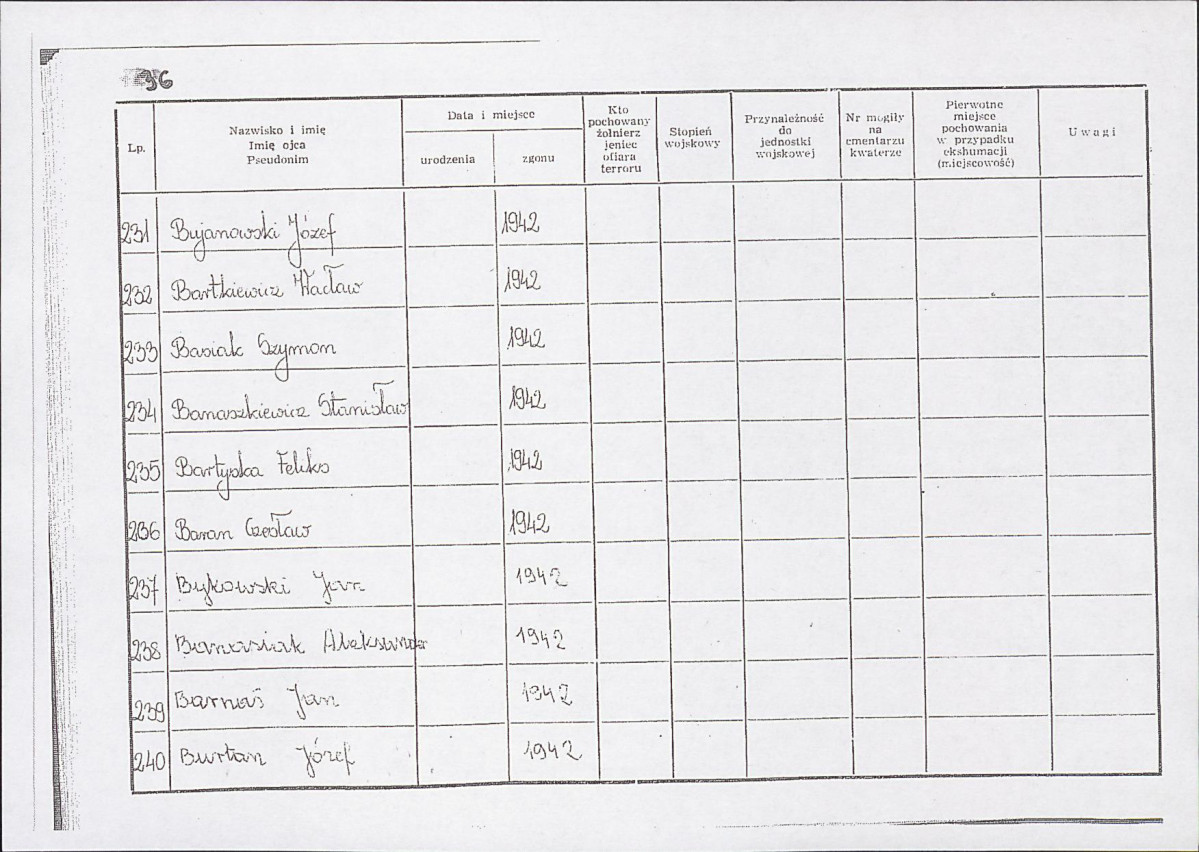 96
Lp.
Nazwisko i imię
Imię ojca
Pseudonim
Data i miejsce
urodzenia
zgonu
Kto
pochowany
żołnierz
jeniec
ofiara
terroru
Stopień
wojskowy
Przynależność
do
jednostki
wojskowej
Nr mogiły
na
cmentarzu
kwaterze
Pierwotne
miejsce
pochowania
w przypadku
ekshumacji
(miejscowość)
Uwagi
231 Bujanowski Józef 1942
232 Bartkiewicz Wacław 1942
233 Basiak Szymon 1942
234 Banaszkiewicz Stanisław 1942
235 Bartyska Feliks 1942
236 Baran Czesław 1942
237 Bykowski Jan 1942
238 Banasiak Aleksander 1942
239 Barnaś Jan 1942
240 Burtan Józef 1942